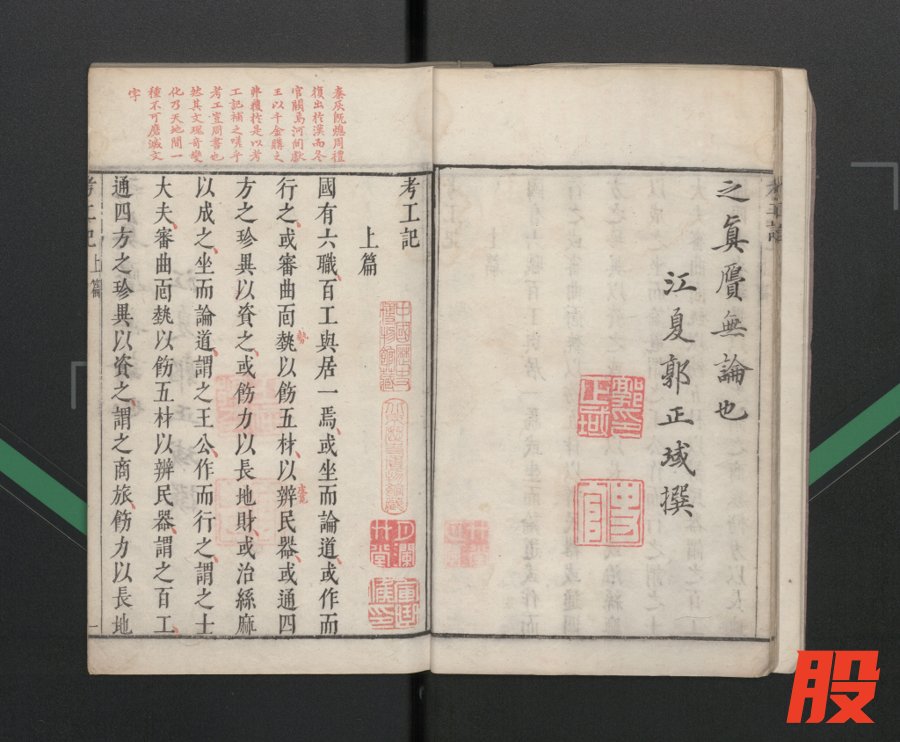 之真贗無論也
江夏郭正域撰
秦灰既熸周禮
復出於漢而冬
官闕焉河間獻
王以千金購之
弗獲於是以考
工記補之嗟乎
考工豈周書也
然其文瑰奇變
化乃天地間一
種不可磨滅文
字
考工記
上篇
國有六職百工與居一焉或坐而論道或作而
行之或審曲面埶以飭五材以辨民器或通四
勢
方之珍異以資之或飭力以長地財或治絲麻
以成之坐而論道謂之王公作而行之謂之士
大夫審曲面埶以飭五材以辨民器謂之百工
通四方之珍異以資之謂之商旅飭力以長地
考工記
上篇
一
中國歷史
博物館藏
股